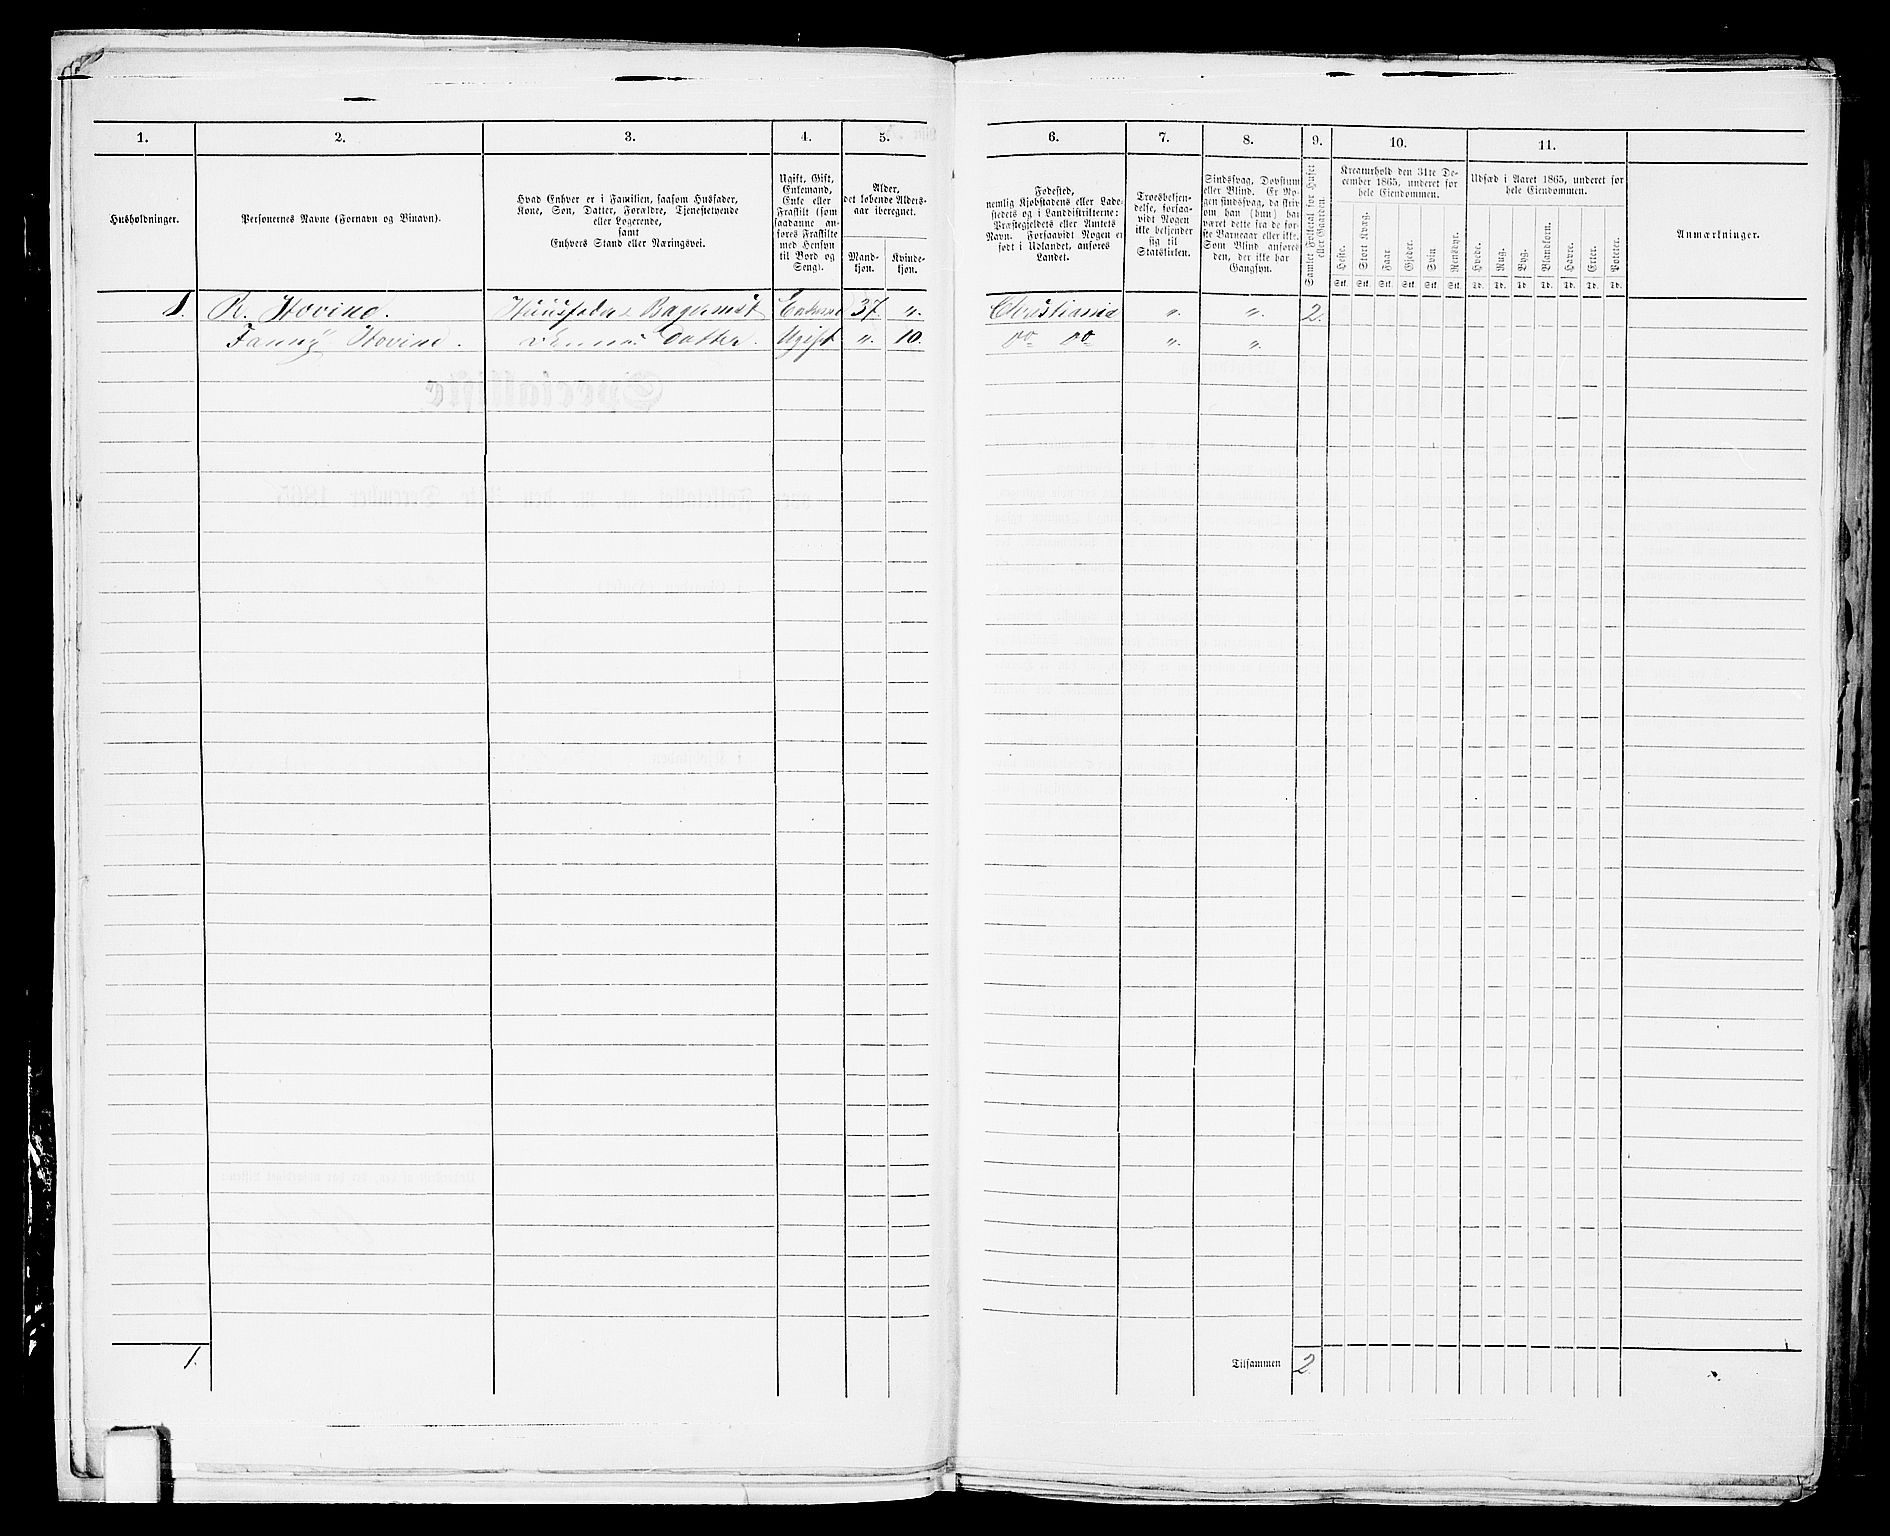 1.
2.
3.
4.
5.
6.
7.
8.
9.
10.
11.
Husholdninger.
Personernes Navne (Fornavn og Binavn).
Hvad Enhver er i Familien, saasom Husfader,
Kone, Søn, Datter, Forældre, Tjenestetyende
eller Logerende,
samt
Enhvers Stand eller Næringsvei.
Ugift, Gift,
Enkemand,
Enke eller
Fraskilt (som
saadanne an-
føres Fraskilte
med Hensyn
til Bord og
Seng).
Alder,
det løbende Alders-
aar iberegnet.
Mand-
kjøn.
Kvinde-
kjøn.
Fødested,
nemlig Kjøbstadens eller Lade-
stedets og i Landdistrikterne:
Præstegjeldets eller Amtets
Navn. Forsaavidt Nogen er
født i Udlandet, anføres
Landet.
Troesbekjen-
delse, forsaa-
vidt Nogen
ikke bekjender
sig til
Statskirken.
Sindssvag, Døvstum
eller Blind. Er No-
gen sindssvag, da skriv
om han (hun) har
været dette fra de før-
ste Barneaar eller ikke.
Som Blind anføres
den, der ikke har
Gangsyn.
Samlet Folketal for Huset
eller Gaarden.
Kreaturhold den 31te De-
cember 1865, underet for
hele Eiendommen.
Heste.
Stort Kvæg.
Faar
Gjeder.
Svin
Rensdyr.
Stk. Stk. Stk. Stk. Stk. Stk.
Udsæd i Aaret 1865, underet for
hele Eiendommen.
Hvede.
Rug.
Byg.
Blandkorn.
Havre.
Erter.
Poteter.
Td. Td. Td. Td. Td. Td. Td.
Anmærkninger.
1. R. Hovind. Huusfader Bagermst 37 ". Christiania ". ". 2.
Fanny Hovind. Datter. Ugift ". 10. do do ". ".
1.
Tilsammen 2